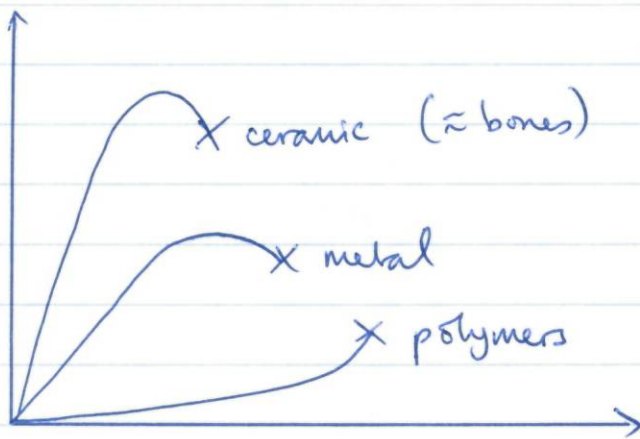 ceramic (≈ bones)
metal
polymers